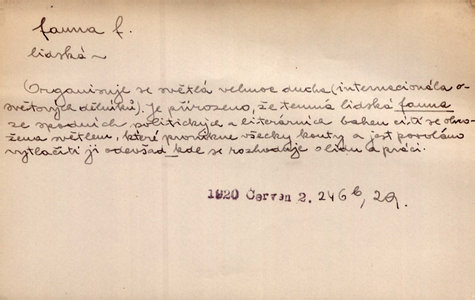 fauna f.
lidská ~
Organisuje se světlá velmoc ducha (internacionála o-
světových dělníků). Je přirozeno, že temná lidská fauna
ze spodních politických a literárních bahen cítí se ohro-
žena světlem, které pronikne všecky kouty a jest povoláno
vytlačiti ji odevšad, kde se rozhoduje o lidu a práci.
1920 Červen 2. 246 b, 29.